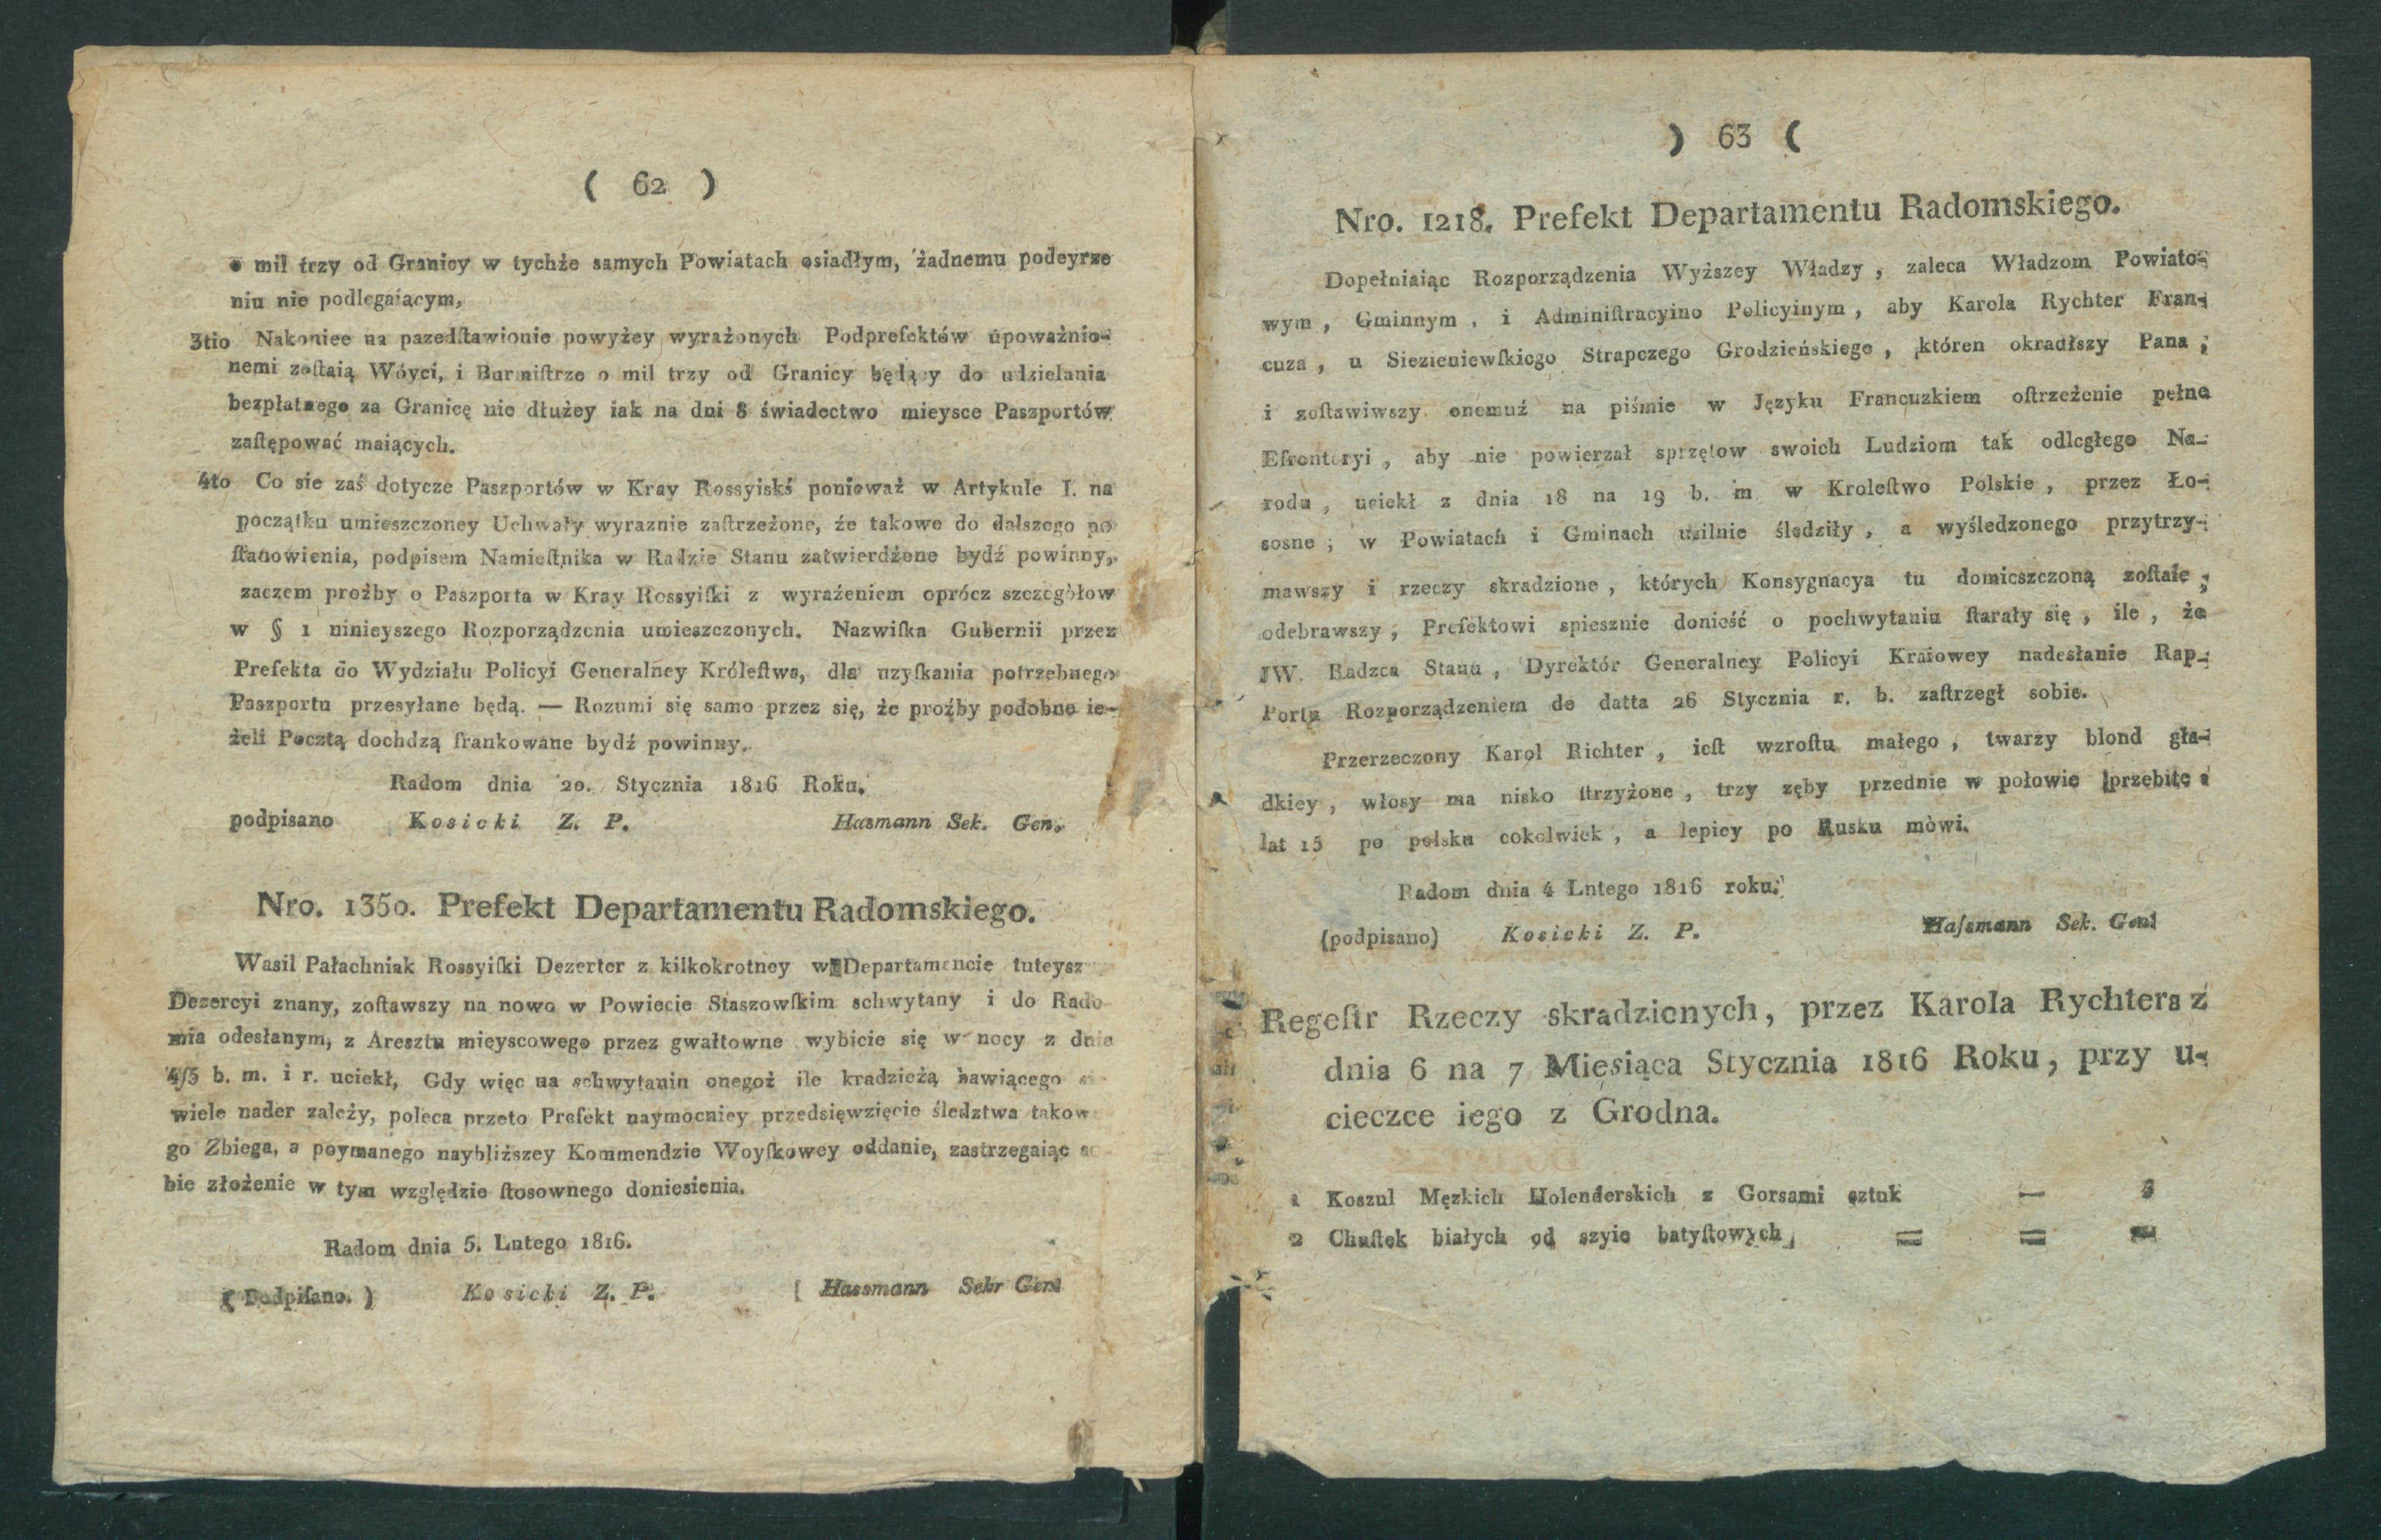 ( 62 )
o mil trzy od Granicy w tychże samych Powiatach osiadłym, żadnemu podeyrze
niu nie podlegaiącym,
3tio Nakoniec na pazedſtawionie powyżey wyrażonych Podprefektów upoważnio-
nemi zoſtaią Wóyci, i Burmiſtrze o mil trzy od Granicy będący do udzielania
bezpłatnego za Granicę nie dłużey iak na dni 8 świadectwo mieysce Paszportów
zaſtępować maiących.
4to Co sie zaś dotycze Paszportów w Kray Rossyiskś ponieważ w Artykule I. na
początku umieszczoney Uchwały wyraznie zaſtrzeżone, że takowe do dalszego po
ſtanowienia, podpisem Namieſtnika w Radzie Stanu zatwierdżone bydź powinny,
zaczem proźby o Paszporta w Kray Rossyiſki z wyrażeniem oprócz szczegòłow
w § 1 ninieyszego Rozporządzenia umieszczonych. Nazwiſka Gubernii przez
Prefekta do Wydziału Policyi Generalney Króleſtwa, dla uzyſkania potrzebnego
Paszportu przesyłane będą. — Rozumi się samo przez się, że proźby podobne ie-
żeli Pocztą dochdzą frankowane bydź powinny.
Radom dnia 20. Stycznia 1816 Roku.
podpisano Kosicki Z. P. Hasmann Sek. Gen.
Nro. 1350. Prefekt Departamentu Radomskiego.
Wasil Pałachniak Rossyiſki Dezerter z kilkokrotney w Departamencie tuteysz
Dezercyi znany, zoſtawszy na nowo w Powiecie Staszowſkim schwytany i do Rado
mia odesłanym, z Aresztu mieyscowego przez gwałtowne wybicie się w nocy z dnia
4/5 b. m. i r. uciekł, Gdy więc na schwytanin onegoż ile kradzieżą bawiącego
wiele nader zależy, poleca przeto Prefekt naymocniey przedsięwzięcie śledztwa takow
go Zbiega, a poymanego naybliższey Kommendzie Woyſkowey oddanie, zastrzegaiąc so
bie złożenie w tym względzie ſtosownego doniesienia.
Radom dnia 5. Lutego 1816.
( Podpiſano. ) Kosicki Z. P. Hassmann Sekr Genl
) 63 (
Nro. 1218. Prefekt Departamentu Radomskiego.
Dopełniaiąc Rozporządzenia Wyższey Władzy, zaleca Władzom Powiato-
wym, Gminnym, i Adminiſtracyino Policyinym, aby Karola Rychter Fran-
cuza, u Siezieniewſkiego Strapczego Grodzieńskiego, któren okradłszy Pana,
i zoſtawiwszy onemuź na piśmie w Języku Francuzkiem oſtrzeżenie pełne
Efronteryi, aby nie powierzał sprzętow swoich Ludziom tak odległego Na-
rodu, uciekł z dnia 18 na 19 b. m w Kroleſtwo Polskie, przez Ło-
sosne; w Powiatach i Gminach usilnie śledziły, a wyśledzonego przytrzy-
mawszy i rzeczy skradzione, których Konsygnacya tu domieszczoną zoſtaie,
odebrawszy, Prefektowi spiesznie donieść o pochwytaniu ſtarały się, ile, że
JW. Radzca Stanu, Dyrektór Generalney Policyi Kraiowey nadesłanie Rap-
Portu Rozporządzeniem de datta 26 Stycznia r. b. zaſtrzegł sobie.
Przerzeczony Karol Richter, ieſt wzroſtu małego, twarzy blond gła-
dkiey, włosy ma nisko ſtrzyżone, trzy zęby przednie w połowie przebite
lat 15 po polsku cokolwiek, a lepiey po Rusku mòwi.
Radom dnia 4 Lntego 1816 roku.
(podpisano) Kosicki Z. P. Haſsmann Sek. Genl
Regeſtr Rzeczy skradzionych, przez Karola Rychtera z
dnia 6 na 7 Miesiąca Stycznia 1816 Roku, przy u-
cieczce iego z Grodna.
1 Koszul Męzkich Holenderskich z Gorsami sztuk —
2 Chuſtek białych od szyie batyſtowych = =